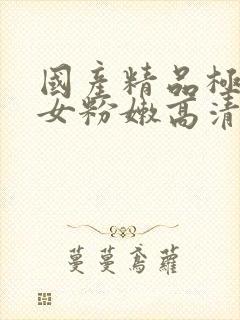 國產精品極
女粉嫩高清
蔓蔓鳶蘿